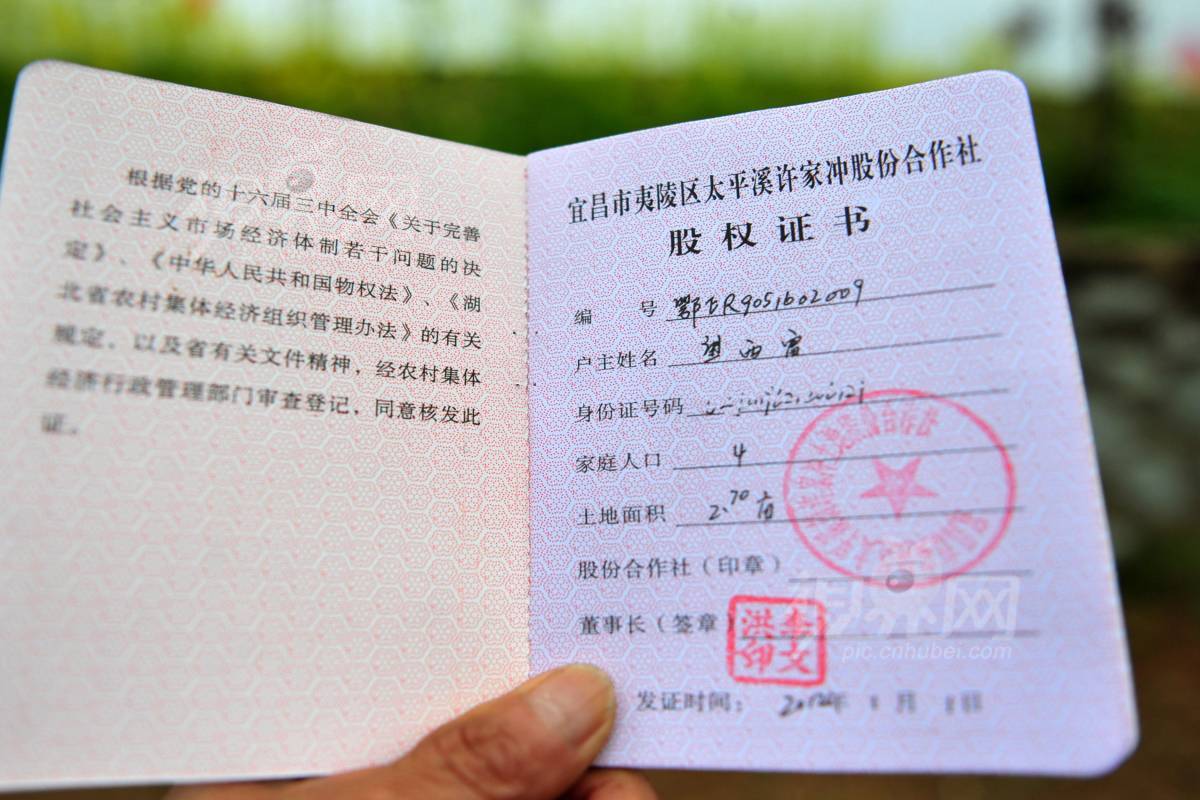 根据党的十六届三中全会《关于完善
社会主义市场经济体制若干问题的决
定》、《中华人民共和国物权法》、《湖
北省农村集体经济组织管理办法》的有关
规定，以及省有关文件精神，经农村集体
经济行政管理部门审查登记，同意核发此
证。
宜昌市夷陵区太平溪许家冲股份合作社
股权证书
编 号 鄂ER9051602009
户主姓名 望西
身份证号码
家庭人口 4
土地面积 2.70亩
股份合作社（印章）
董事长（签章）
李文
洪印
发证时间： 年 月 日
pic.cnhubei.com